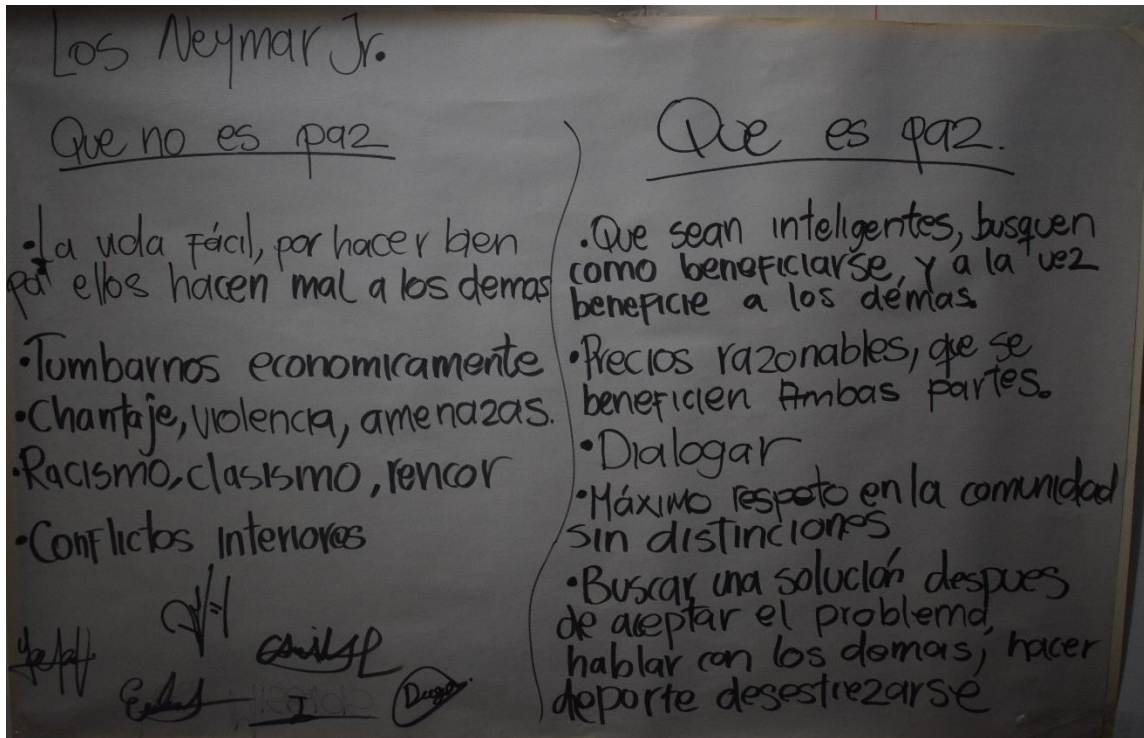 Los Neymar Jr.
Que no es paz
•La vida Fácil, por hacer bien
por ellos hacen mal a los demas
•Tumbarnos economicamente
•Chantaje, violencia, amenazas.
•Racismo, clasismo, rencor
•Conflictos interiores
Que es paz.
•Que sean inteligentes, busquen
como beneficiarse, y a la vez
beneficie a los démas.
•Precios razonables, que se
beneficien Ambas partes.
•Dialogar
•Máximo respeto en la comunidad
sin distinciones
•Buscar una solución despues
de aceptar el problema,
hablar con los demas, hacer
deporte desestrezarse